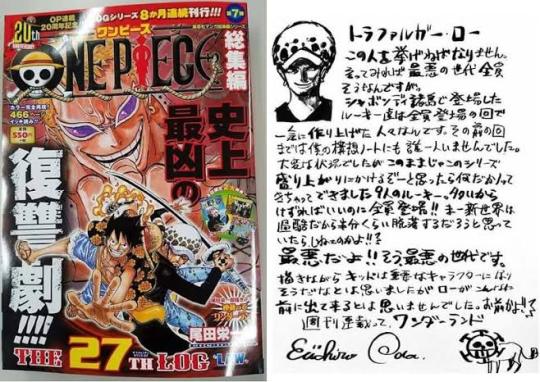 20th
OP連載
20周年記念
LOGシリーズ8か月連続刊行!!!
第7弾
ワンピース
ONE PIECE
総集編
カラー完全再現!
466ページ
イッキ読み!!
550円
史上
最凶の
復讐劇!!!!
尾田栄一郎
THE 27TH LOG
"LAW"
トラファルガー・ロー
この人を挙げねばなりません。
そえてみれば最悪の世代全員
そうなんですが、
シャボンディ諸島で登場した
ルーキー達は全員登場の回で
一気に作り上げた人々なんです。その前の回
までは僕の構想ノートにも誰一人いませんでした。
大変な状況でしたがこのままじゃこのシリーズ
盛り上がりにかけるぞーと思ったら何だかんだで
できました9人のルーキー。多いから
けずればいいのに全員登場!! まー新世界は
過酷だから半分くらい脱落するだろうと思って
いたらしねェのかよ!!
最悪だよ!! そう最悪の世代です。
描きながらキッドは重要なキャラクターになり
そうだなとは思いましたがローがこんなに
前に出て来るとは思いませんでした。お前かよ!!?
週刊連載って、ワンダーランド
Eiichiro Oda.